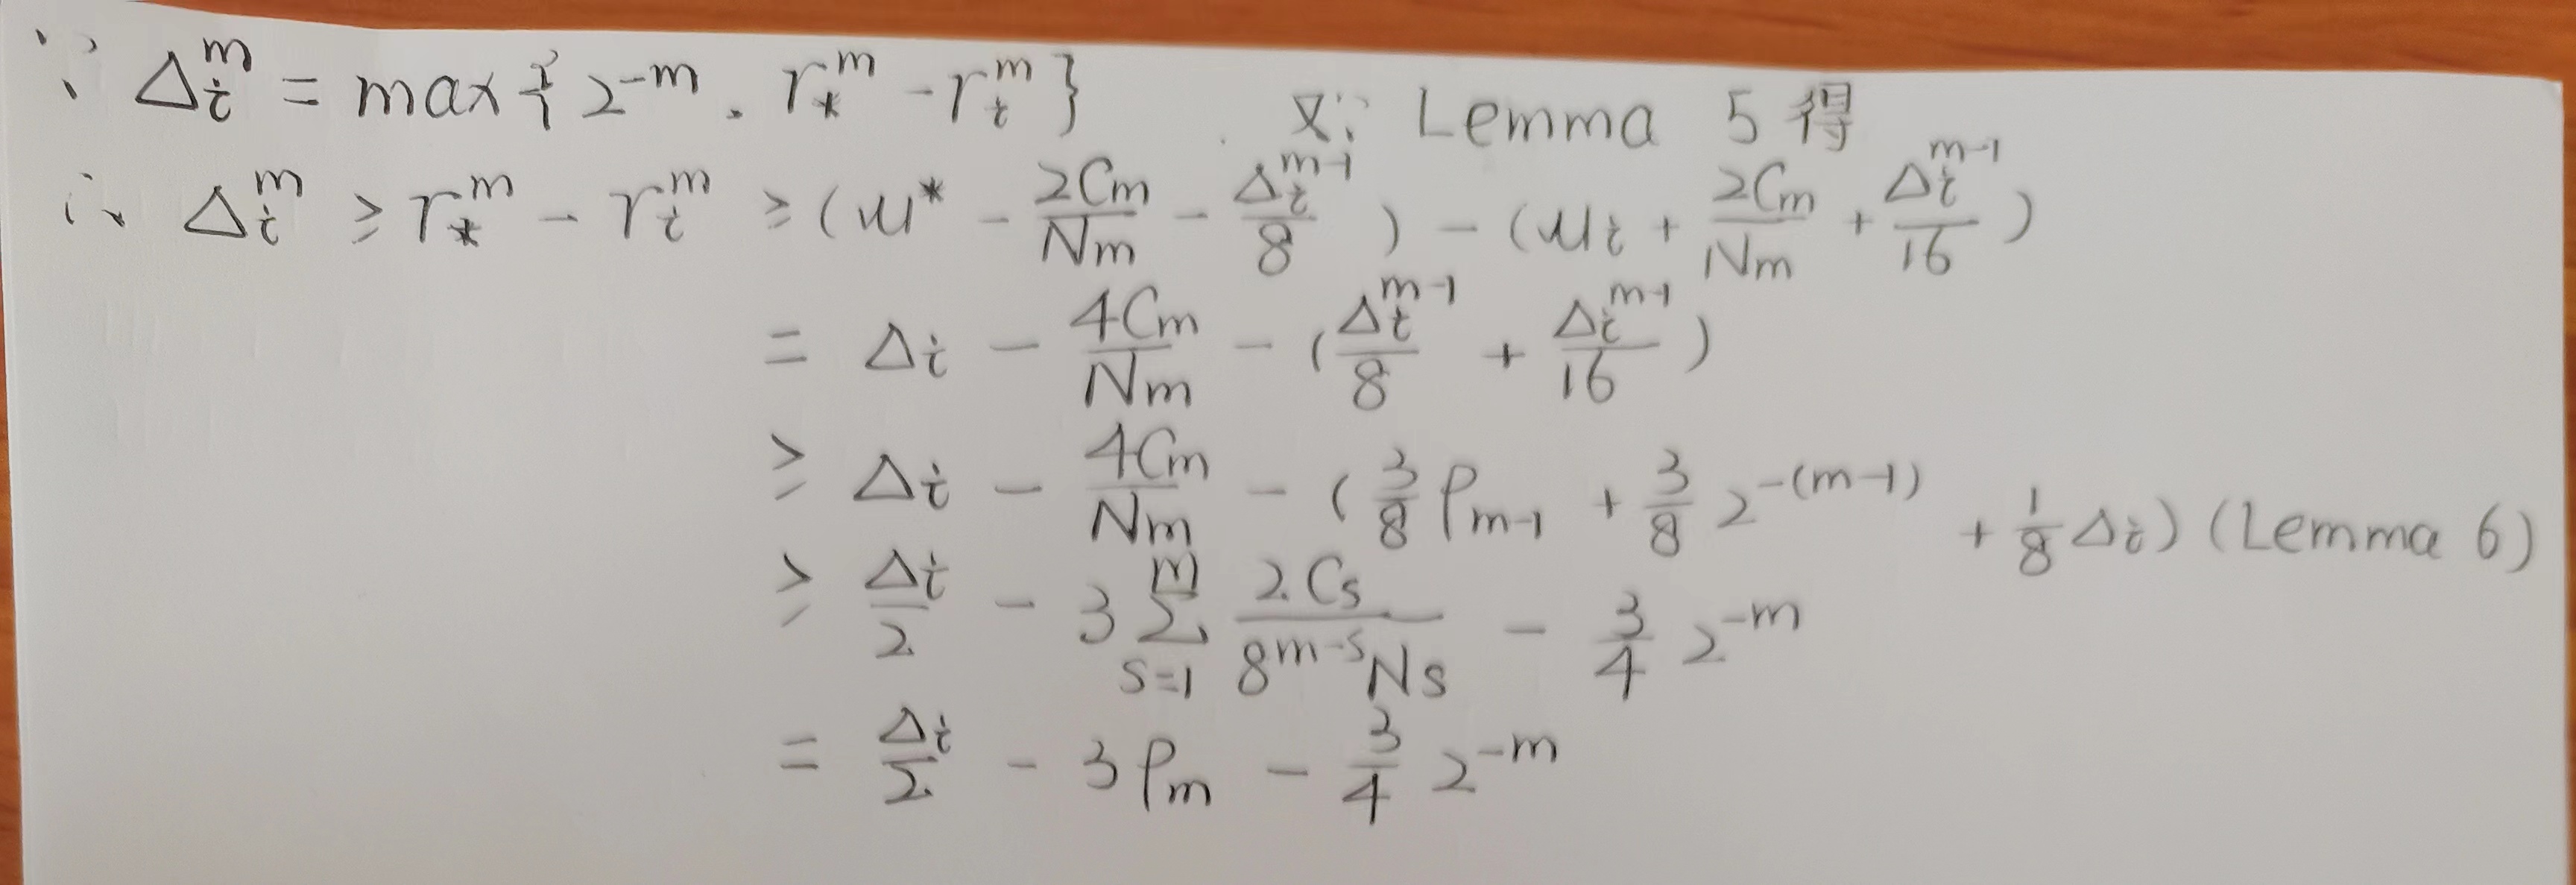 ∵ Δ_i^m = max{2^{-m}, r_*^m - r_i^m} 又∵ Lemma 5 得
∴ Δ_i^m ≥ r_*^m - r_i^m ≥ (μ^* - \frac{2C_m}{N_m} - \frac{Δ_i^{m-1}}{8}) - (μ_i + \frac{2C_m}{N_m} + \frac{Δ_i^{m-1}}{16})
= Δ_i - \frac{4C_m}{N_m} - (\frac{Δ_i^{m-1}}{8} + \frac{Δ_i^{m-1}}{16})
≥ Δ_i - \frac{4C_m}{N_m} - (\frac{3}{8} ρ_{m-1} + \frac{3}{8} 2^{-(m-1)} + \frac{1}{8} Δ_i) (Lemma 6)
≥ \frac{Δ_i}{2} - 3 \sum_{s=1}^{m} \frac{2C_s}{8^{m-s} N_s} - \frac{3}{4} 2^{-m}
= \frac{Δ_i}{2} - 3ρ_m - \frac{3}{4} 2^{-m}